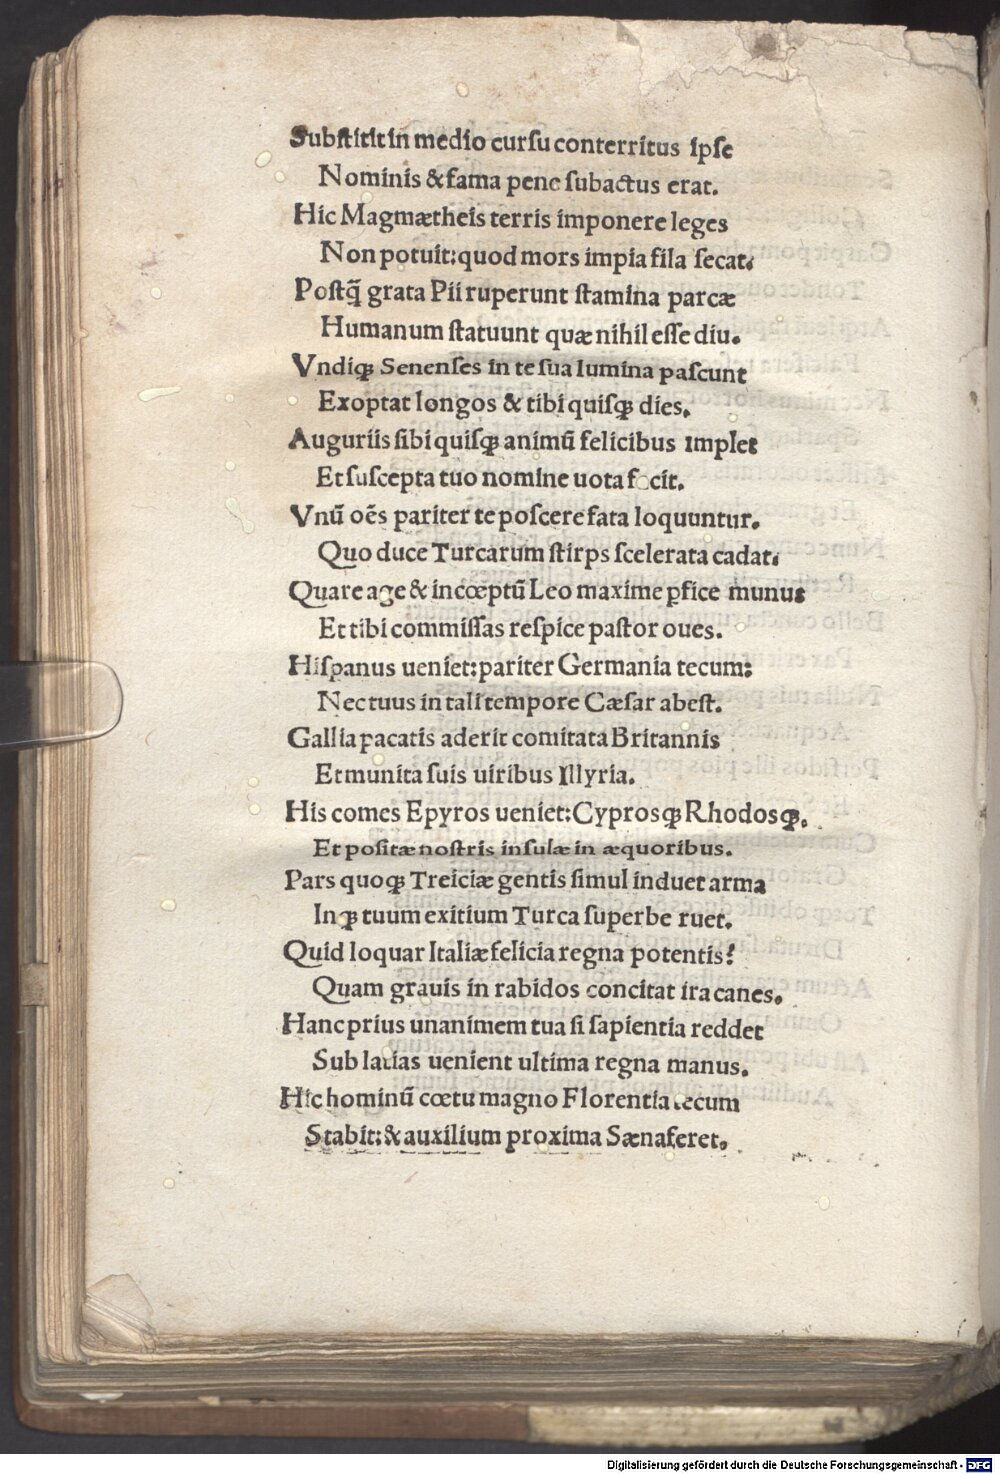 Subſtitit in medio curſu conterritus ipſe
Nominis & fama pene ſubactus erat.
Hic Magmætheis terris imponere leges
Non potuit: quod mors impia fila ſecat.
Poſtq̃ grata Pii ruperunt ſtamina parcæ
Humanum ſtatuunt quæ nihil eſſe diu.
Vndiqꝫ Senenſes in te ſua lumina paſcunt
Exoptat longos & tibi quiſqꝫ dies.
Auguriis ſibi quiſqꝫ animũ felicibus implet
Et ſuſcepta tuo nomine uota facit.
Vnũ oẽs pariter te poſcere fata loquuntur.
Quo duce Turcarum ſtirps ſcelerata cadat.
Quare age & incœptũ Leo maxime ꝑfice munus
Et tibi commiſſas reſpice paſtor oues.
Hiſpanus ueniet: pariter Germania tecum:
Nec tuus in tali tempore Cæſar abeſt.
Gallia pacatis aderit comitata Britannis
Et munita ſuis uiribus Illyria.
His comes Epyros ueniet: Cyprosqꝫ Rhodosqꝫ.
Et poſitæ noſtris inſulæ in æquoribus.
Pars quoqꝫ Treiciæ gentis ſimul induet arma
Inqꝫ tuum exitium Turca ſuperbe ruet.
Quid loquar Italiæ felicia regna potentis?
Quam grauis in rabidos concitat ira canes.
Hanc prius unanimem tua ſi ſapientia reddet
Sub latias uenient ultima regna manus.
Hic hominũ cœtu magno Florentia tecum
Stabit: & auxilium proxima Sæna feret.
Digitalisierung gefördert durch die Deutsche Forschungsgemeinschaft - DFG